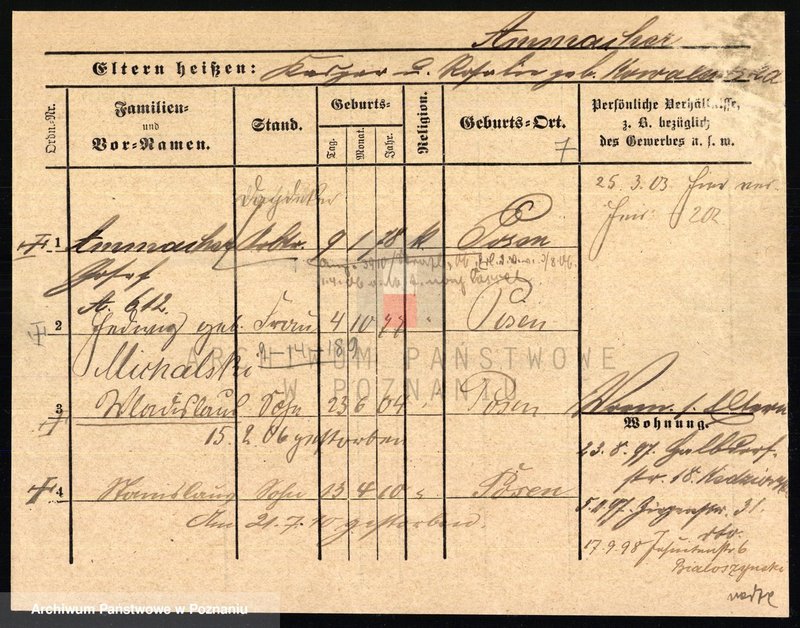 Ammacher
Eltern heißen: Kasper u. Rosalie geb. Kowalewska
Ordn.-Nr.
Familien- und Vor-Namen.
Stand.
Geburts-
Tag.
Monat.
Jahr.
Religion.
Geburts-Ort.
7
Persönliche Verhältnisse, z. B. bezüglich des Gewerbes u. s. w.
25. 3. 03.
202
Dachdecker
1 Ammacher Arbtr. 9 1 78 k Posen
Josef
A. 612
2 Hedwig geb. Frau 4 10 77 " Posen
Michalski 9-14 189
3 Wladislaus Sohn 23 6 04 " Posen
15. 2. 06 gestorben
4 Stanislaus Sohn 13 4 10 " Posen
Am 21. 7. 10 gestorben.
s. Eltern
Wohnung.
23. 8. 97. Halbdorf-
str. 18.
31.
17. 9. 98 Jesuitenstr 6
Bialoszynski
ARCHIWUM PAŃSTWOWE
W POZNANIU
Archiwum Państwowe w Poznaniu